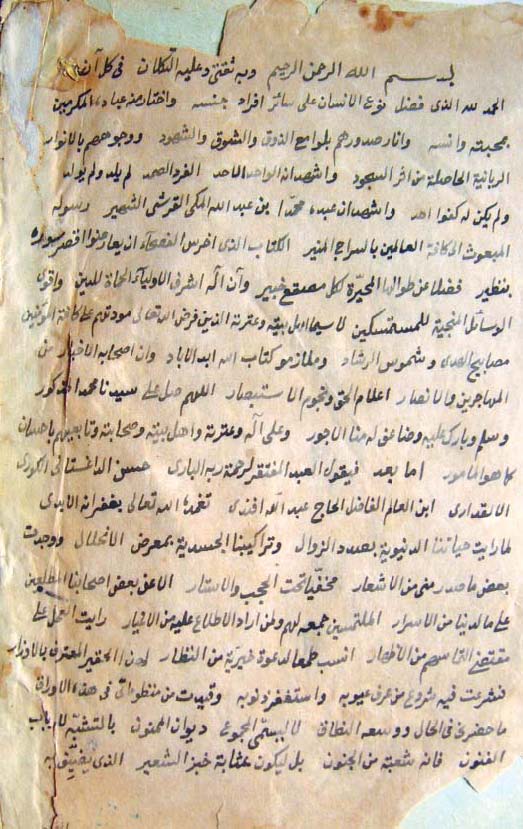 بسم الله الرحمن الرحيم وبه ثقتى وعليه التكلان فى كل آن
الحمد لله الذى فضل نوع الانسان على سائر افراد جنسه واختار من عباده المكرمين
بمحبته وانسه وانار صدورهم بلوامع الذوق والشوق والشهود ووجوههم بالانوار
الربانية الحاصلة من اثر السجود واشهد ان الله الواحد الاحد الفرد الصمد لم يلد ولم يولد
ولم يكن له كفوا احد واشهد ان عبده محمدا ابن عبد الله المكى القرشى الشهير رسوله
المبعوث الى كافة العالمين بالسراج المنير الكتاب الذى اخرس الفصحآء ان يعارضوا اقصر سوره
بنظير فضلا عن طوالها المحيرة لكل مصقع خبير وان آله اشرف الاوليآء الحماة للدين واقوى
الوسائل المنجية للمستمسكين لا سيما اهل بيته وعترته الذين فرض الله تعالى مودتهم على كافة المؤمنين
مصابيح الهدى وشموس الرشاد وملازمو كتاب الله ابد الاباد وان اصحابه الاخيار من
المهاجرين والانصار اعلام الحق ونجوم الاستبصار اللهم صل على سيدنا محمد المذكور
وسلم وبارك عليه وضاعف له منا الاجور وعلى آله وعترته واهل بيته وصحابته وتابعيهم باحسان
كما هو المأمور اما بعد فيقول العبد المفتقر لرحمة ربه البارى حسن الداغستانى الكورى
الالقدارى ابن العالم الفاضل الحاج عبد الله افندى تغمده الله تعالى بغفرانه الابدى
لما رايت حياتنا الدنيوية بصدد الزوال وتراكيبنا الجسدية بمعرض الانحلال ووجدت
بعض ما صدر منى من الاشعار مختفيا تحت الحجب والاستار الا عن بعض اصحابنا المطلعين
على ما لدينا من الاسرار الملتمسين جمعه لهم ولمن اراد الاطلاع عليه من الاخيار رايت العمل على
مقتضى التماسهم من الاطهار انسب طمعا لدعوة خيرية من النظار لهذا الحقير المعترف بالاوزار
فشرعت فيه شروع من عرف عيوبه واستغفر ذنوبه وقيدت من منظوماتى فى هذه الاوراق
ما حضرنى فى الحال ووسعه النطاق لا ليسمى المجموع ديوان الممنون بالتشبه لارباب
الفنون فانه شعبة من الجنون بل ليكون بمثابة خبز الشعير الذى يضيق به